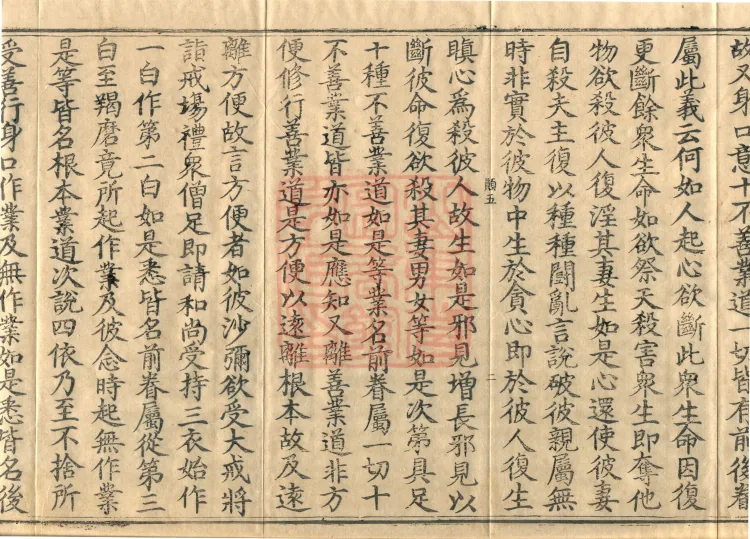 故又身口意十不善業道一切皆有前後眷
屬此義云何如人起心欲斷此衆生命因復
更斷餘衆生命如欲祭天殺害衆生即奪他
物欲殺彼人復淫其妻生如是心還使彼妻
自殺夫主復以種種鬪亂言說破彼親屬無
時非實於彼物中生於貪心即於彼人復生
顛五
二
瞋心爲殺彼人故生如是邪見增長邪見以
斷彼命復欲殺其妻男女等如是次第具足
十種不善業道如是等業名前眷屬一切十
不善業道皆亦如是應知又離善業道非方
便修行善業道是方便以遠離根本故及遠
離方便故言方便者如彼沙彌欲受大戒將
詣戒場禮衆僧足即請和尚受持三衣始作
一白作第二白如是悉皆名前眷屬從第三
白至羯磨竟所起作業及彼念時起無作業
是等皆名根本業道次說四依乃至不捨所
受善行身口作業及無作業如是悉皆名後